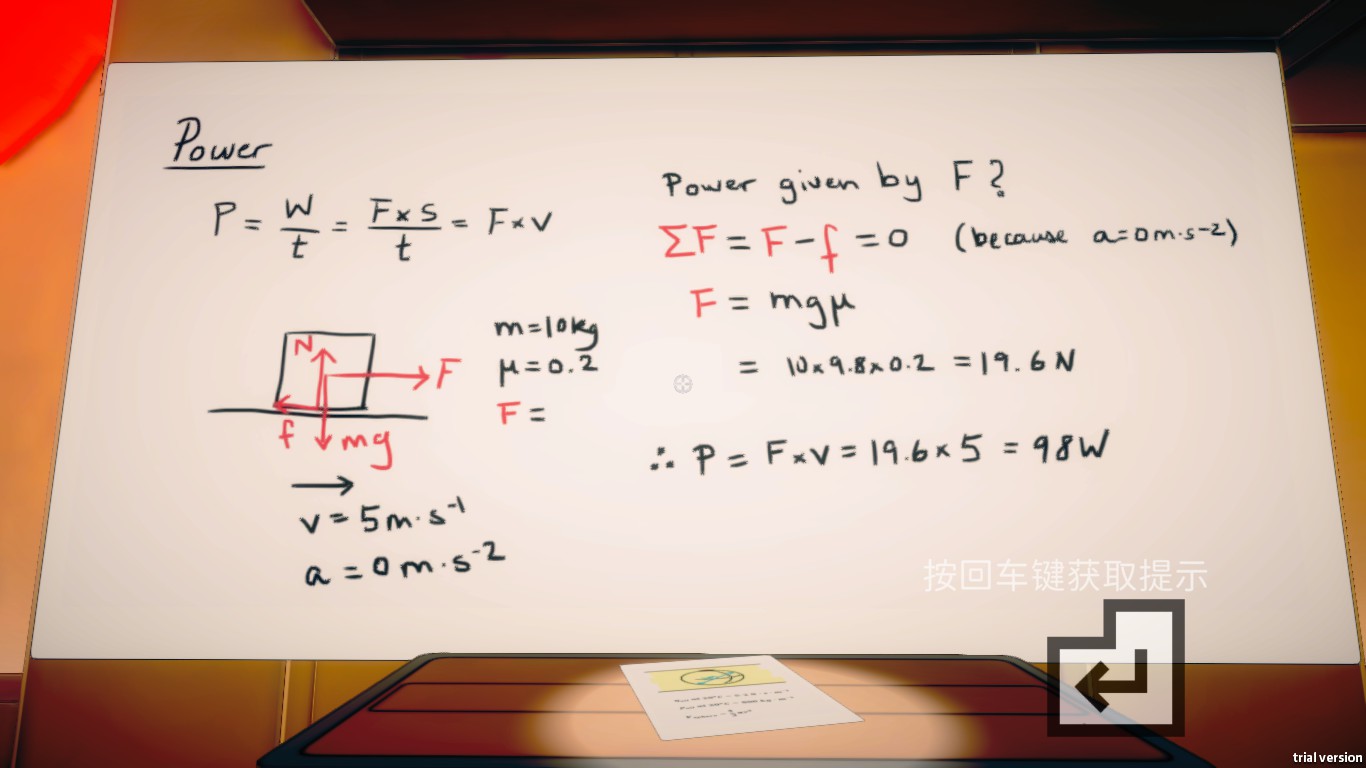 Power
P = W/t = F×s/t = F×v
N
F
f
mg
v = 5m·s⁻¹
a = 0m·s⁻²
m=10kg
μ=0.2
F =
Power given by F?
ΣF = F-f = 0 (because a=0m·s-2)
F = mgμ
= 10×9.8×0.2 = 19.6N
∴ P = F×v = 19.6×5 = 98W
按回车键获取提示
trial version